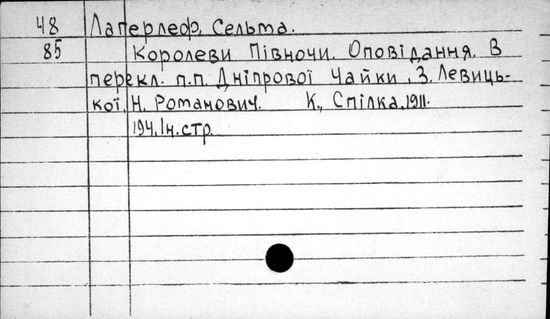 48 Лаґерлеф, Сельма.
85 Королеви Півночи. Оповідання. В
перекл. п.п. Дніпрової Чайки, З. Левиць-
кої, Н. Романович. К., Спілка, 1911.
194, Ін. стр.